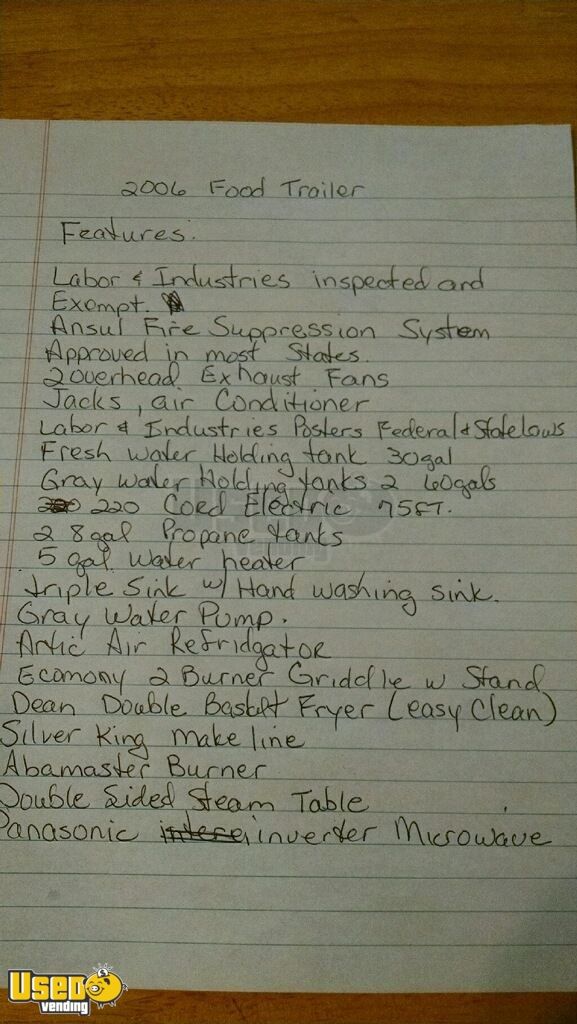 2006 Food Trailer
Features.
Labor & Industries inspected and
Exempt.
Ansul Fire Suppression System
Approved in most States.
2 overhead Exhaust Fans
Jacks, air Conditioner
Labor & Industries Posters Federal & State laws
Fresh water Holding tank 30gal
Gray water Holding tanks 2 60gals
220 Cord Electric 75FT.
2 8gal Propane tanks
5 gal water heater
triple Sink w/ Hand washing sink.
Gray Water Pump.
Artic Air Refridgator
Ecomony 2 Burner Griddle w Stand
Dean Double Basket Fryer (easy Clean)
Silver King make line
Abamaster Burner
Double Sided Steam Table
Panasonic inverter Microwave
Used
vending